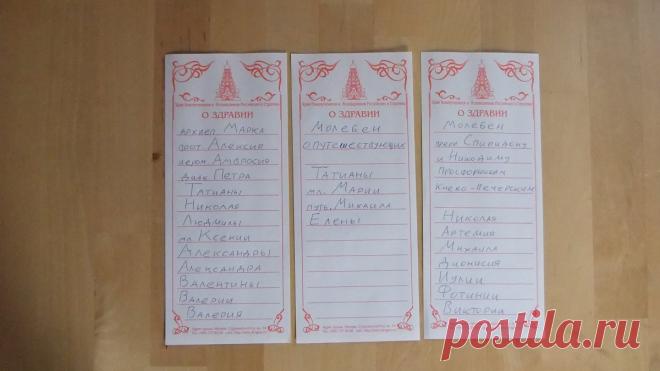 О ЗДРАВИИ
архиеп Марка
прот Алексия
иером Амвросия
диак Петра
Татианы
Николая
Людмилы
мл. Ксении
Александры
Александра
Валентины
Валерии
Валерия
О ЗДРАВИИ
Молебен
о путешествующих
Татианы
мл. Марии
путь. Михаила
Елены
О ЗДРАВИИ
Молебен
Спиридону
и Никодиму
просфорникам
Киево-Печерским
Николая
Артемия
Михаила
Дионисия
Иулии
Фотинии
Виктории
postila.ru